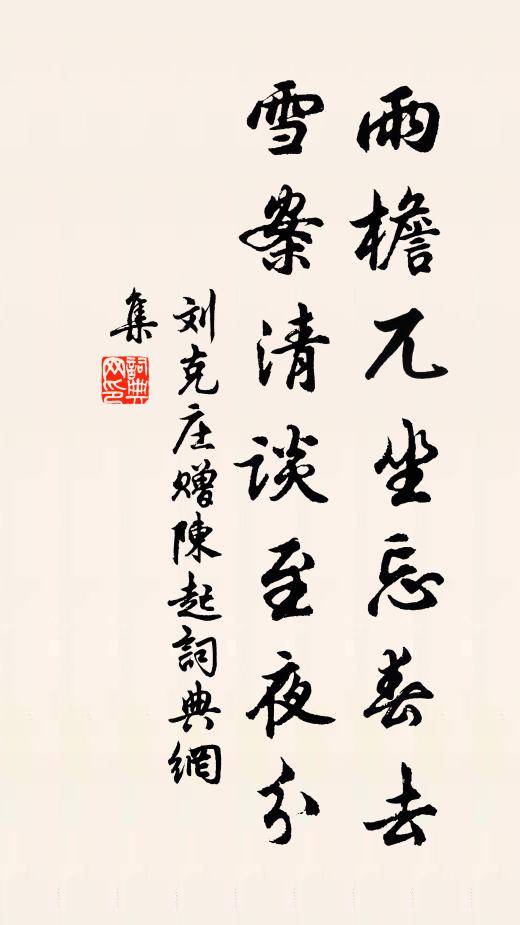 雨檐兀坐忘春去
雪案清談至夜分
刘克庄赠陳起詞典網
集
詞典网印